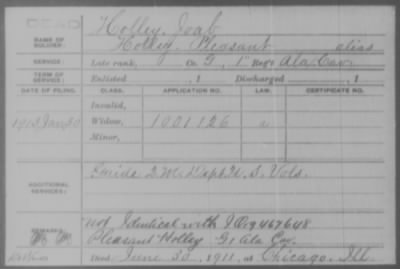 Holley, Joab
NAME OF SOLDIER: Holley, Pleasant alias
SERVICE: Late rank, Co. G, 1" Reg't Ala. Cav.
TERM OF SERVICE: Enlisted , 1 Discharged , 1
DATE OF FILING. CLASS. APPLICATION NO. LAW. CERTIFICATE NO.
Invalid,
1913 Jan 30 Widow, 1001126 a
Minor,
ADDITIONAL SERVICES: Guide Q.M. Dept. U.S. Vols.
REMARKS: Not Identical with I.Org 467648
Pleasant Holley G 1 Ala Cav.
Died June 30, 1911, at Chicago, Ill